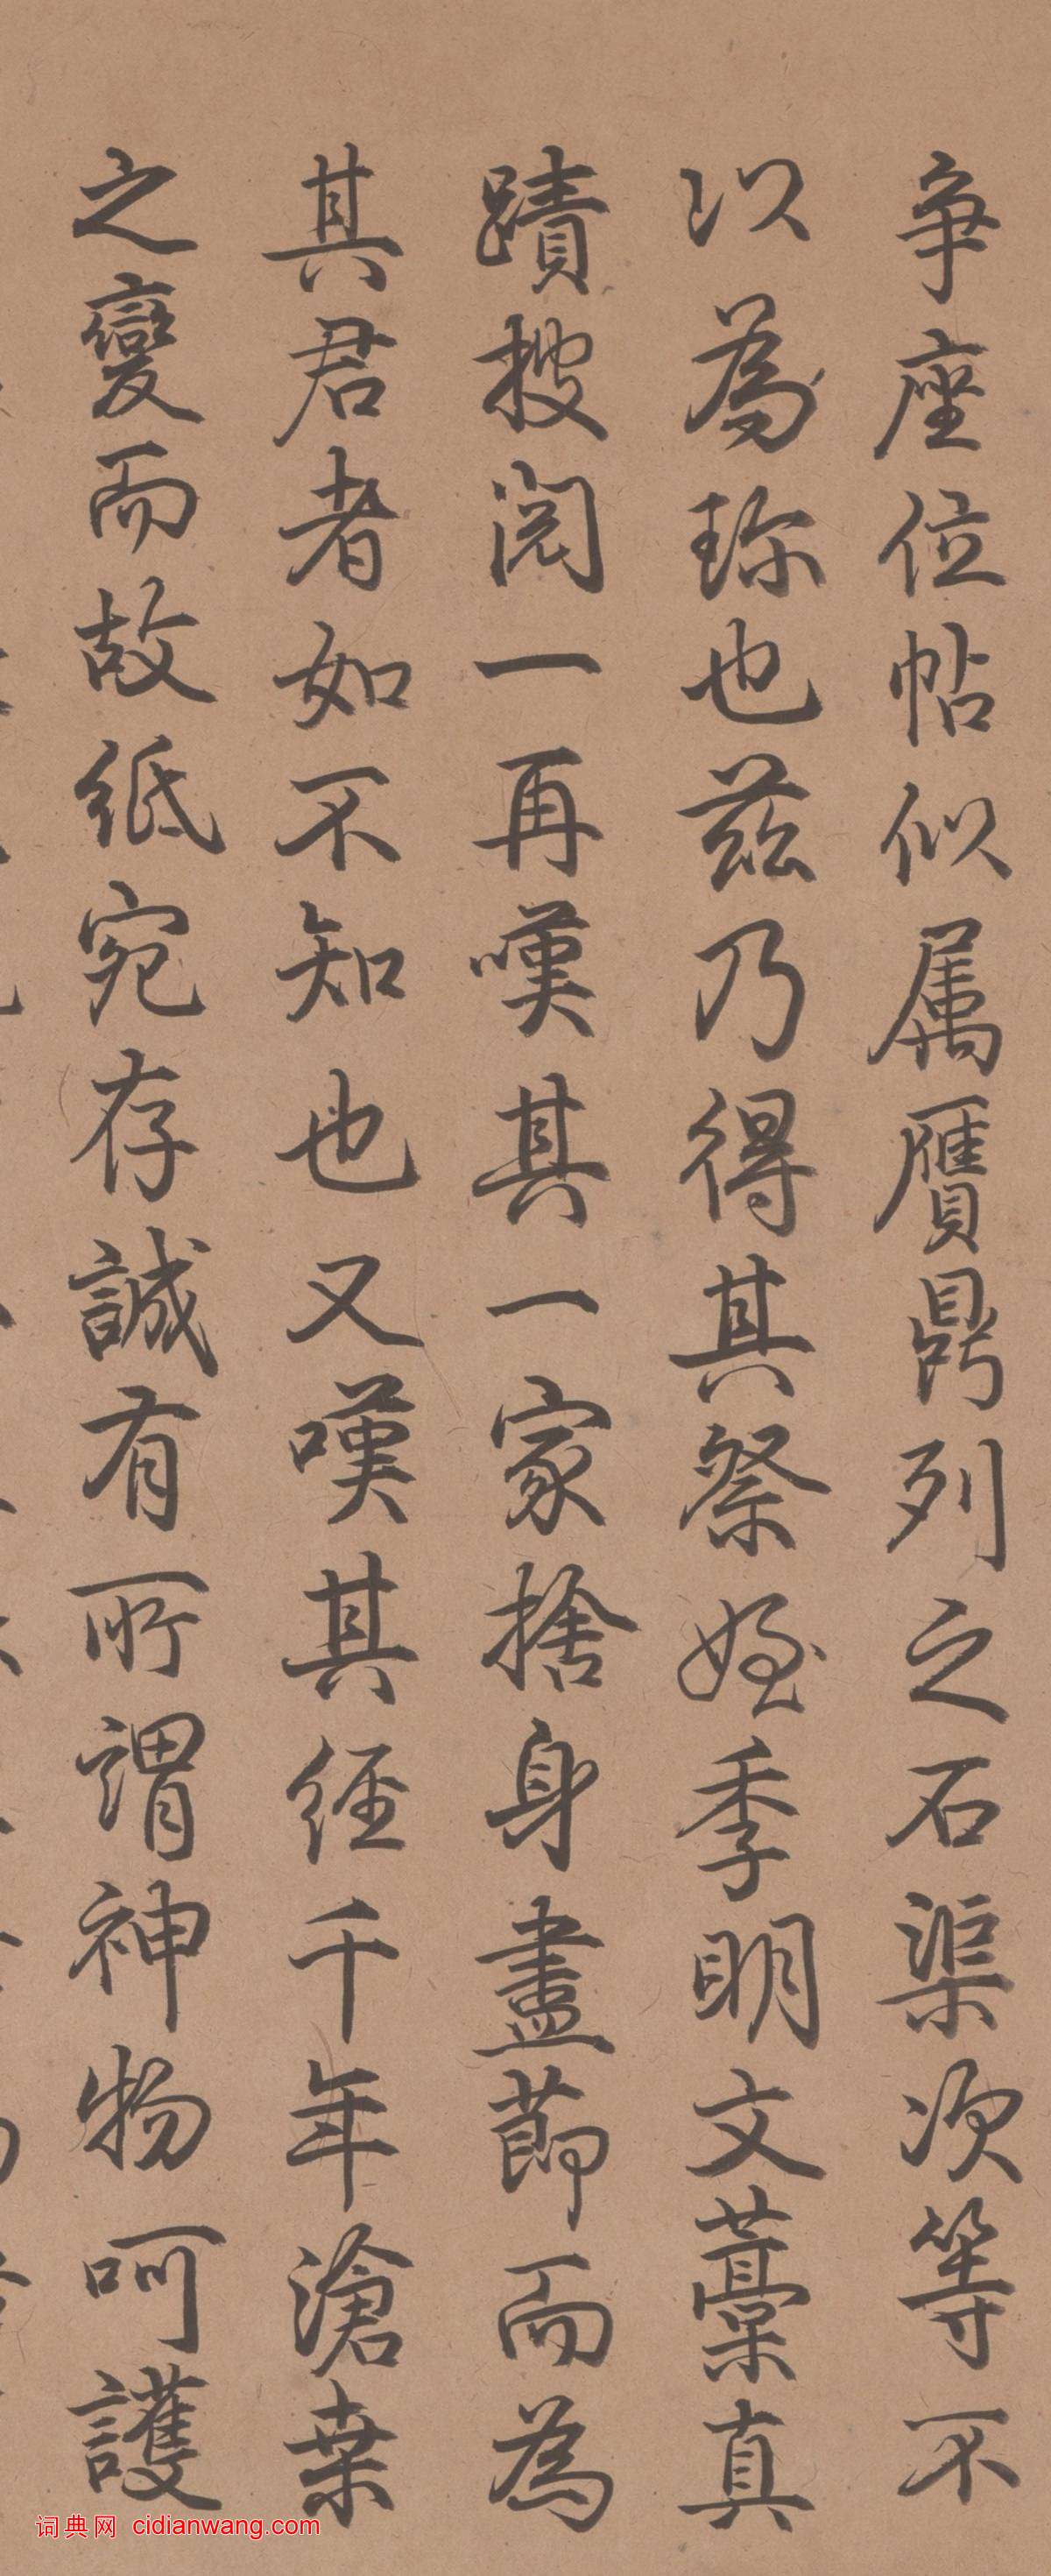 争座位帖似属贋鼎列之石渠次等不
以為珎也兹乃得其祭姪季明文藁真
蹟披閲一再嘆其一家捨身盡節而為
其君者如不知也又嘆其經千年滄桒
之變而故紙宛存誠有所謂神物呵護
词典网 cidianwang.com